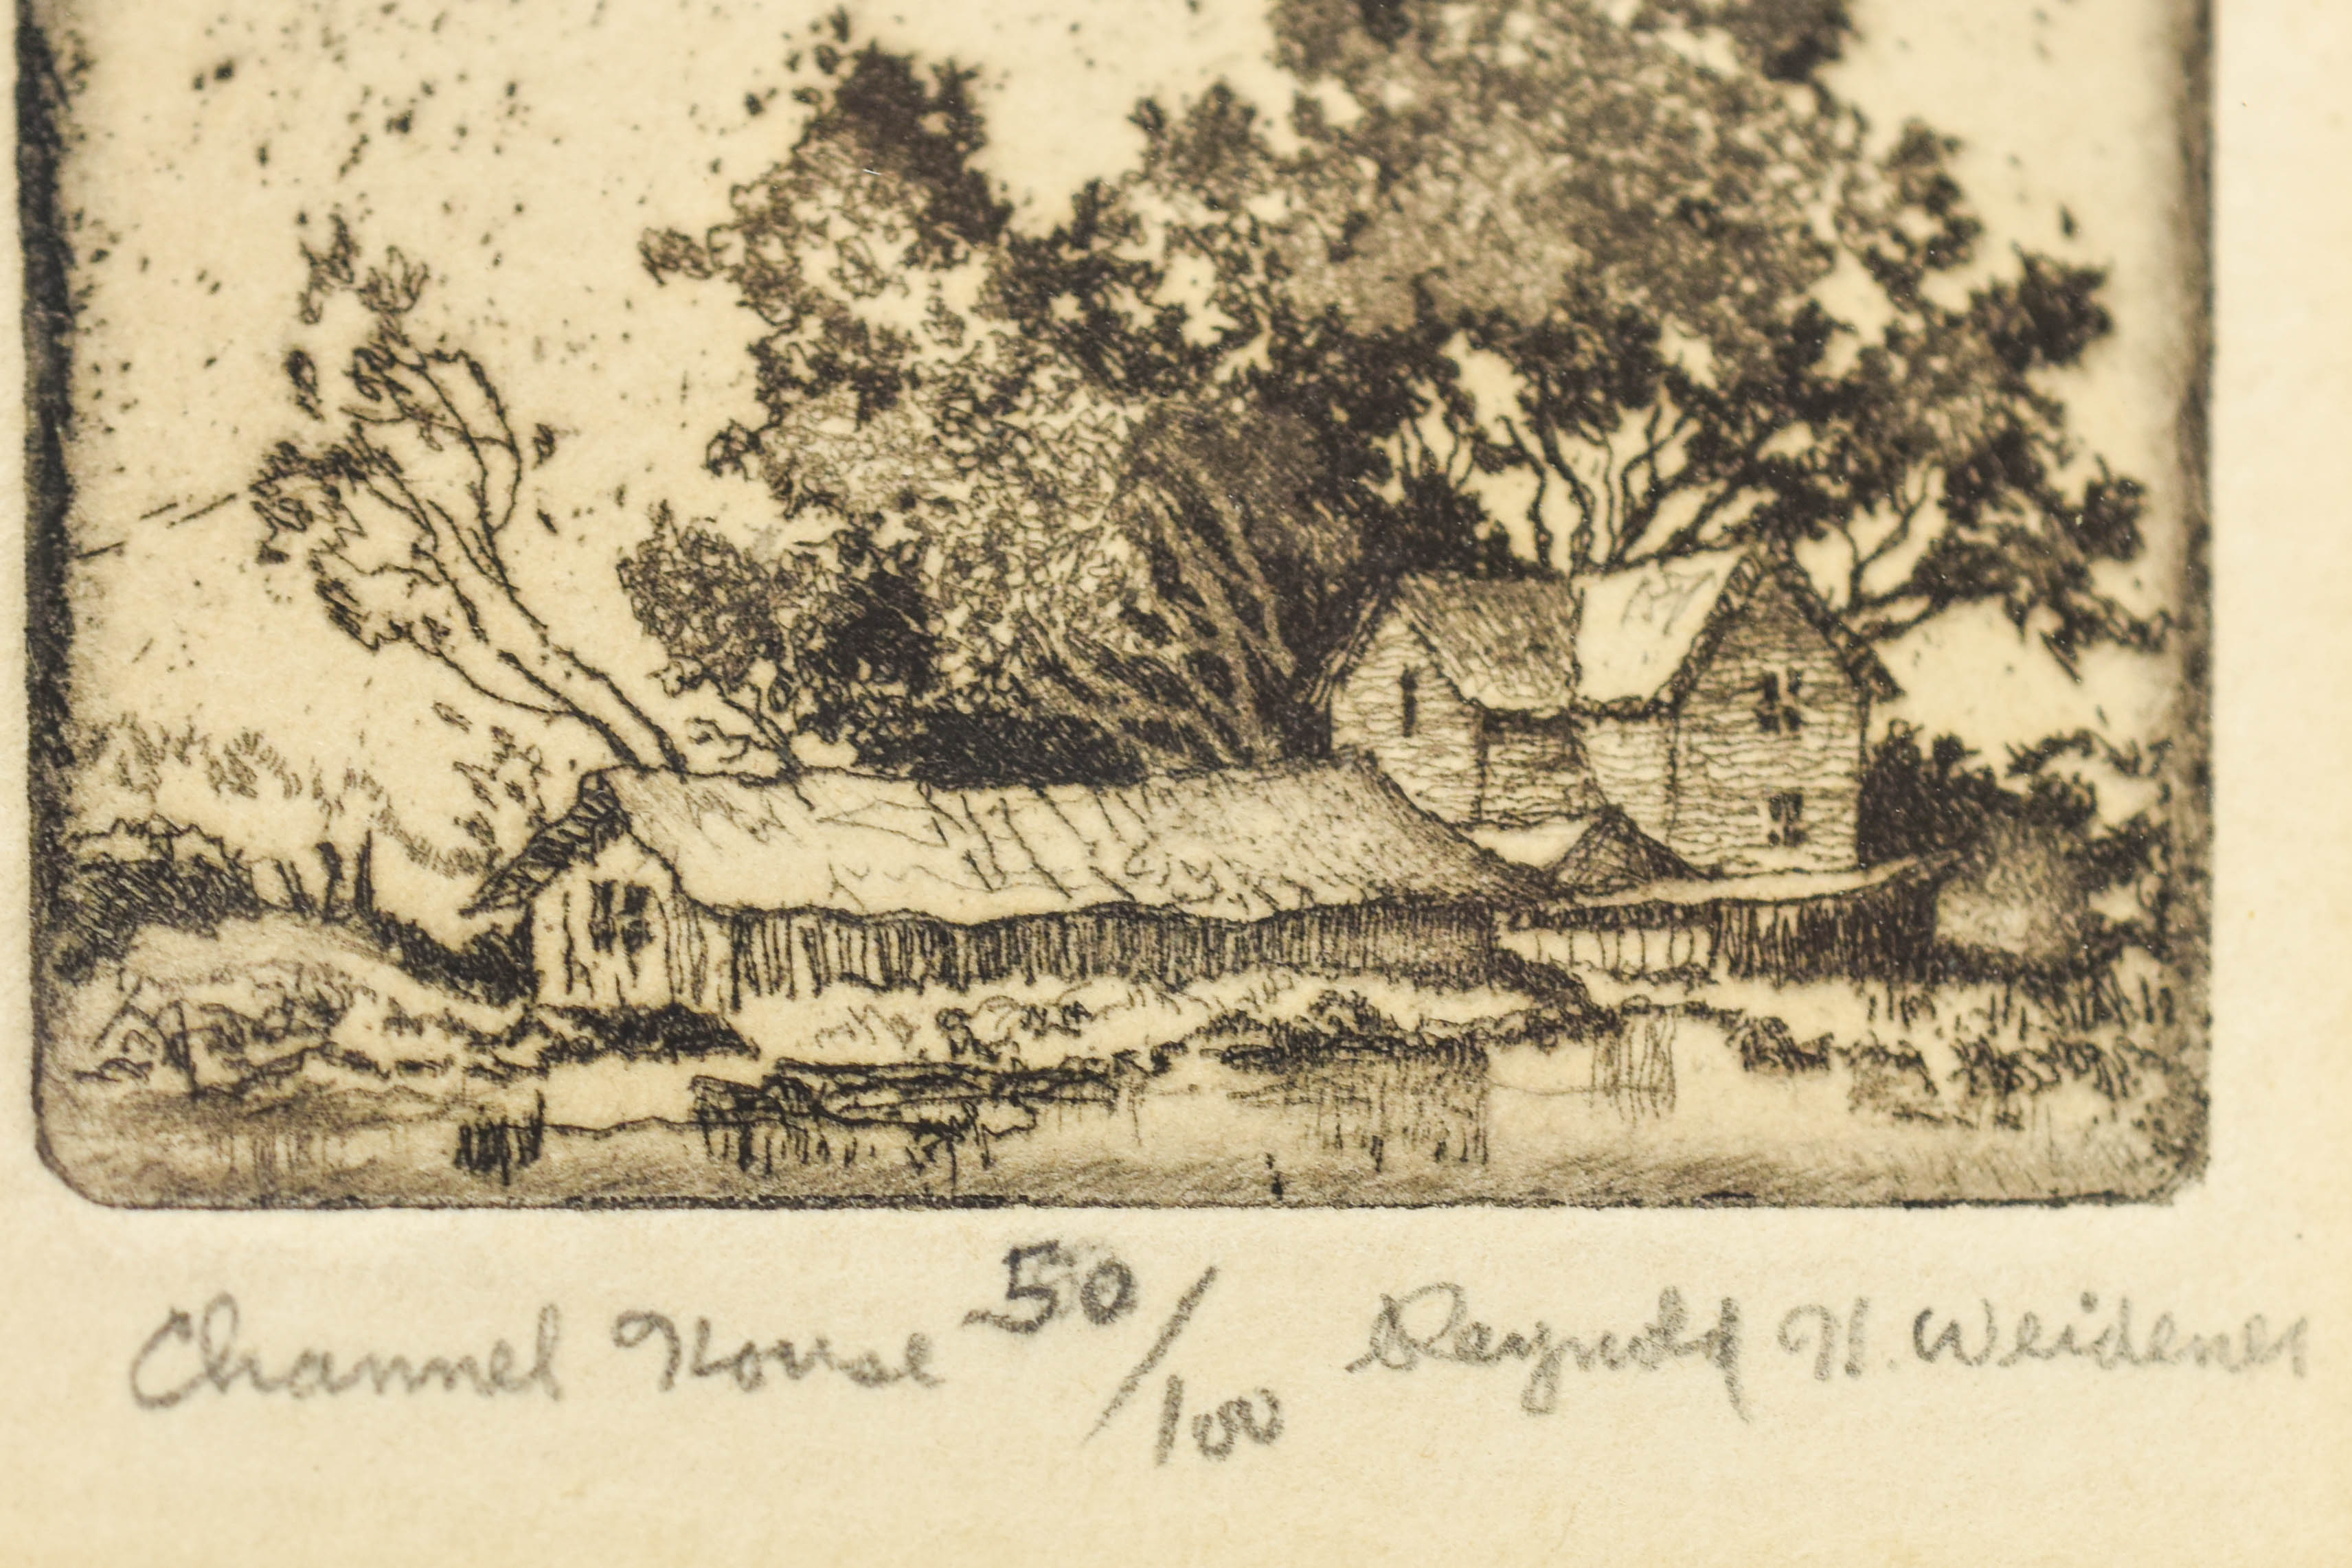 Channel House 50/100 Reynold H. Weidenaar